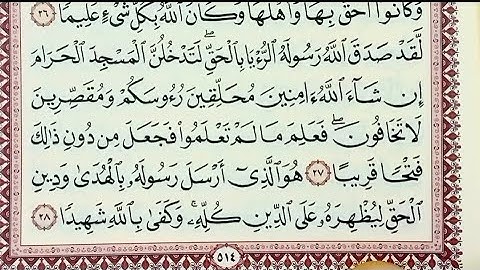 وَكَانُوٓا۟ أَحَقَّ بِهَا وَأَهْلَهَا وَكَانَ ٱللَّهُ بِكُلِّ شَىْءٍ عَلِيمًا ٢٦
لَّقَدْ صَدَقَ ٱللَّهُ رَسُولَهُ ٱلرُّءْيَا بِٱلْحَقِّ ۖ لَتَدْخُلُنَّ ٱلْمَسْجِدَ ٱلْحَرَامَ
إِن شَآءَ ٱللَّهُ ءَامِنِينَ مُحَلِّقِينَ رُءُوسَكُمْ وَمُقَصِّرِينَ
لَا تَخَافُونَ ۖ فَعَلِمَ مَا لَمْ تَعْلَمُوا۟ فَجَعَلَ مِن دُونِ ذَٰلِكَ
فَتْحًا قَرِيبًا ٢٧ هُوَ ٱلَّذِىٓ أَرْسَلَ رَسُولَهُۥ بِٱلْهُدَىٰ وَدِينِ
ٱلْحَقِّ لِيُظْهِرَهُۥ عَلَى ٱلدِّينِ كُلِّهِۦ ۚ وَكَفَىٰ بِٱللَّهِ شَهِيدًا ٢٨
٥١٤